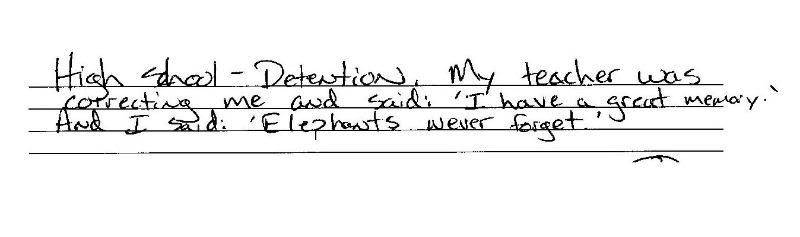 High school - Detention. My teacher was
correcting me and said: 'I have a great memory.'
And I said: 'Elephants never forget.'